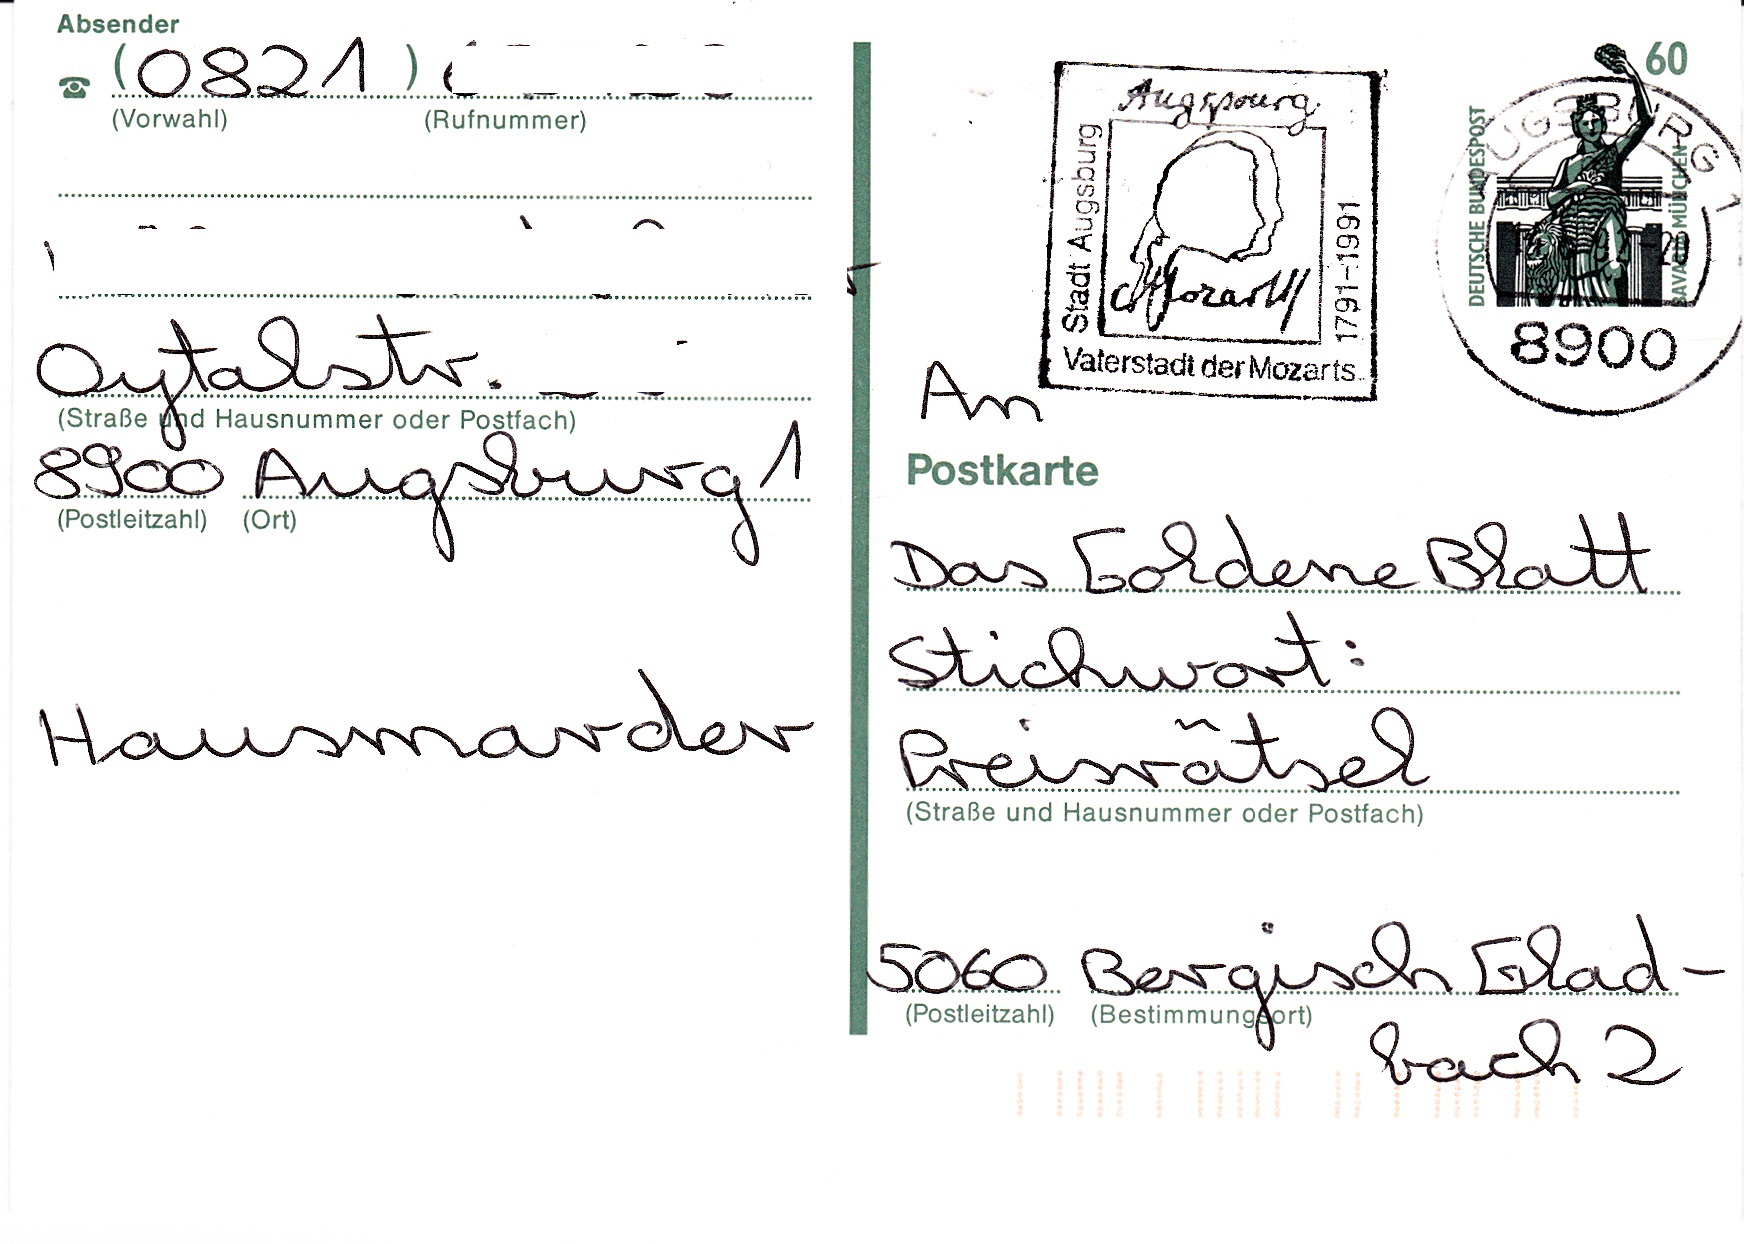 Absender
(0821) (
(Vorwahl) (Rufnummer)
Oytalstr.
(Straße und Hausnummer oder Postfach)
8900 Augsburg 1
(Postleitzahl) (Ort)
Hausmarder
Augspourg
Stadt Augsburg
Mozart
1791-1991
Vaterstadt der Mozarts
60
DEUTSCHE BUNDESPOST
BAVARIA MÜNCHEN
AUGSBURG 1
8900
An
Postkarte
Das Goldene Blatt
Stichwort:
Preisrätsel
(Straße und Hausnummer oder Postfach)
5060 Bergisch Glad-
(Postleitzahl) (Bestimmungsort)
bach 2